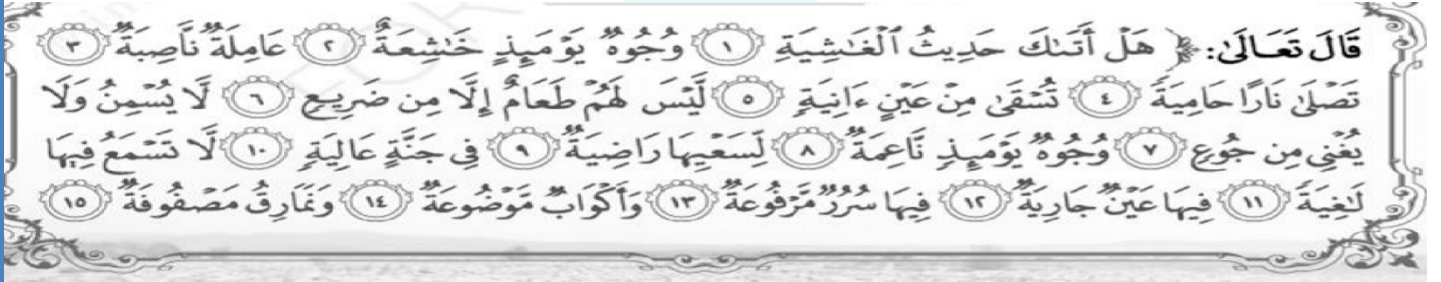 قَالَ تَعَالَىٰ: ﴿ هَلْ أَتَىٰكَ حَدِيثُ ٱلْغَٰشِيَةِ ١ وُجُوهٌ يَوْمَئِذٍ خَٰشِعَةٌ ٢ عَامِلَةٌ نَّاصِبَةٌ ٣
تَصْلَىٰ نَارًا حَامِيَةً ٤ تُسْقَىٰ مِنْ عَيْنٍ ءَانِيَةٍ ٥ لَّيْسَ لَهُمْ طَعَامٌ إِلَّا مِن ضَرِيعٍ ٦ لَّا يُسْمِنُ وَلَا
يُغْنِي مِن جُوعٍ ٧ وُجُوهٌ يَوْمَئِذٍ نَّاعِمَةٌ ٨ لِّسَعْيِهَا رَاضِيَةٌ ٩ فِي جَنَّةٍ عَالِيَةٍ ١٠ لَّا تَسْمَعُ فِيهَا
لَٰغِيَةً ١١ فِيهَا عَيْنٌ جَارِيَةٌ ١٢ فِيهَا سُرُرٌ مَّرْفُوعَةٌ ١٣ وَأَكْوَابٌ مَّوْضُوعَةٌ ١٤ وَنَمَارِقُ مَصْفُوفَةٌ ١٥